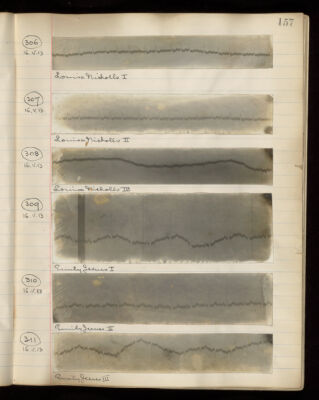 157
306
16.V.13
Louisa Nicholls I
307
16.V.13
Louisa Nicholls II
308
16.V.13
Louisa Nicholls III
309
16.V.13
Emily Jesse I
310
16.V.13
Emily Jesse II
311
16.V.13
Emily Jesse III